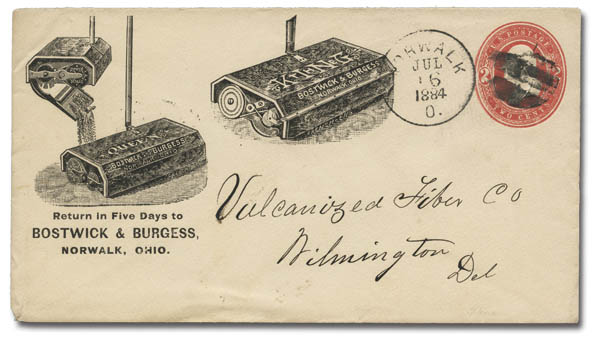 QUEEN
BOSTWICK & BURGESS
BOSTWICK & BURGESS
NORWALK, OHIO.
NORWALK
JUL
16
1884
O.
U.S. POSTAGE
TWO CENTS
Return in Five Days to
BOSTWICK & BURGESS,
NORWALK, OHIO.
Vulcanized Fiber Co
Wilmington
Del